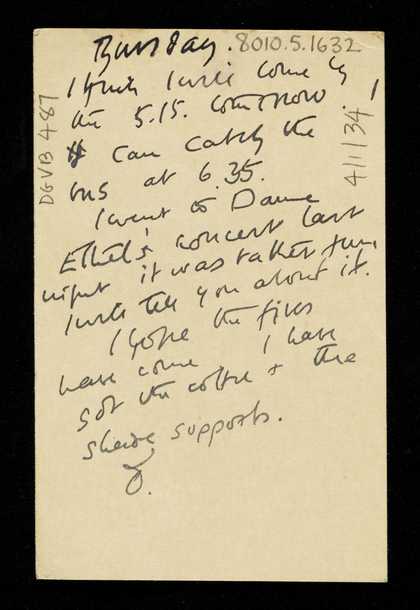 Thursday. 8010.5.1632
I think I will come by
the 5.15. tomorrow. I
can catch the
bus at 6.35.
I went to Dame
Ethel's concert last
night it was rather fun.
I will tell you about it.
I hope the
have come I have
got the coffee & the
supports.
D.
DGVB 487
4/1/34